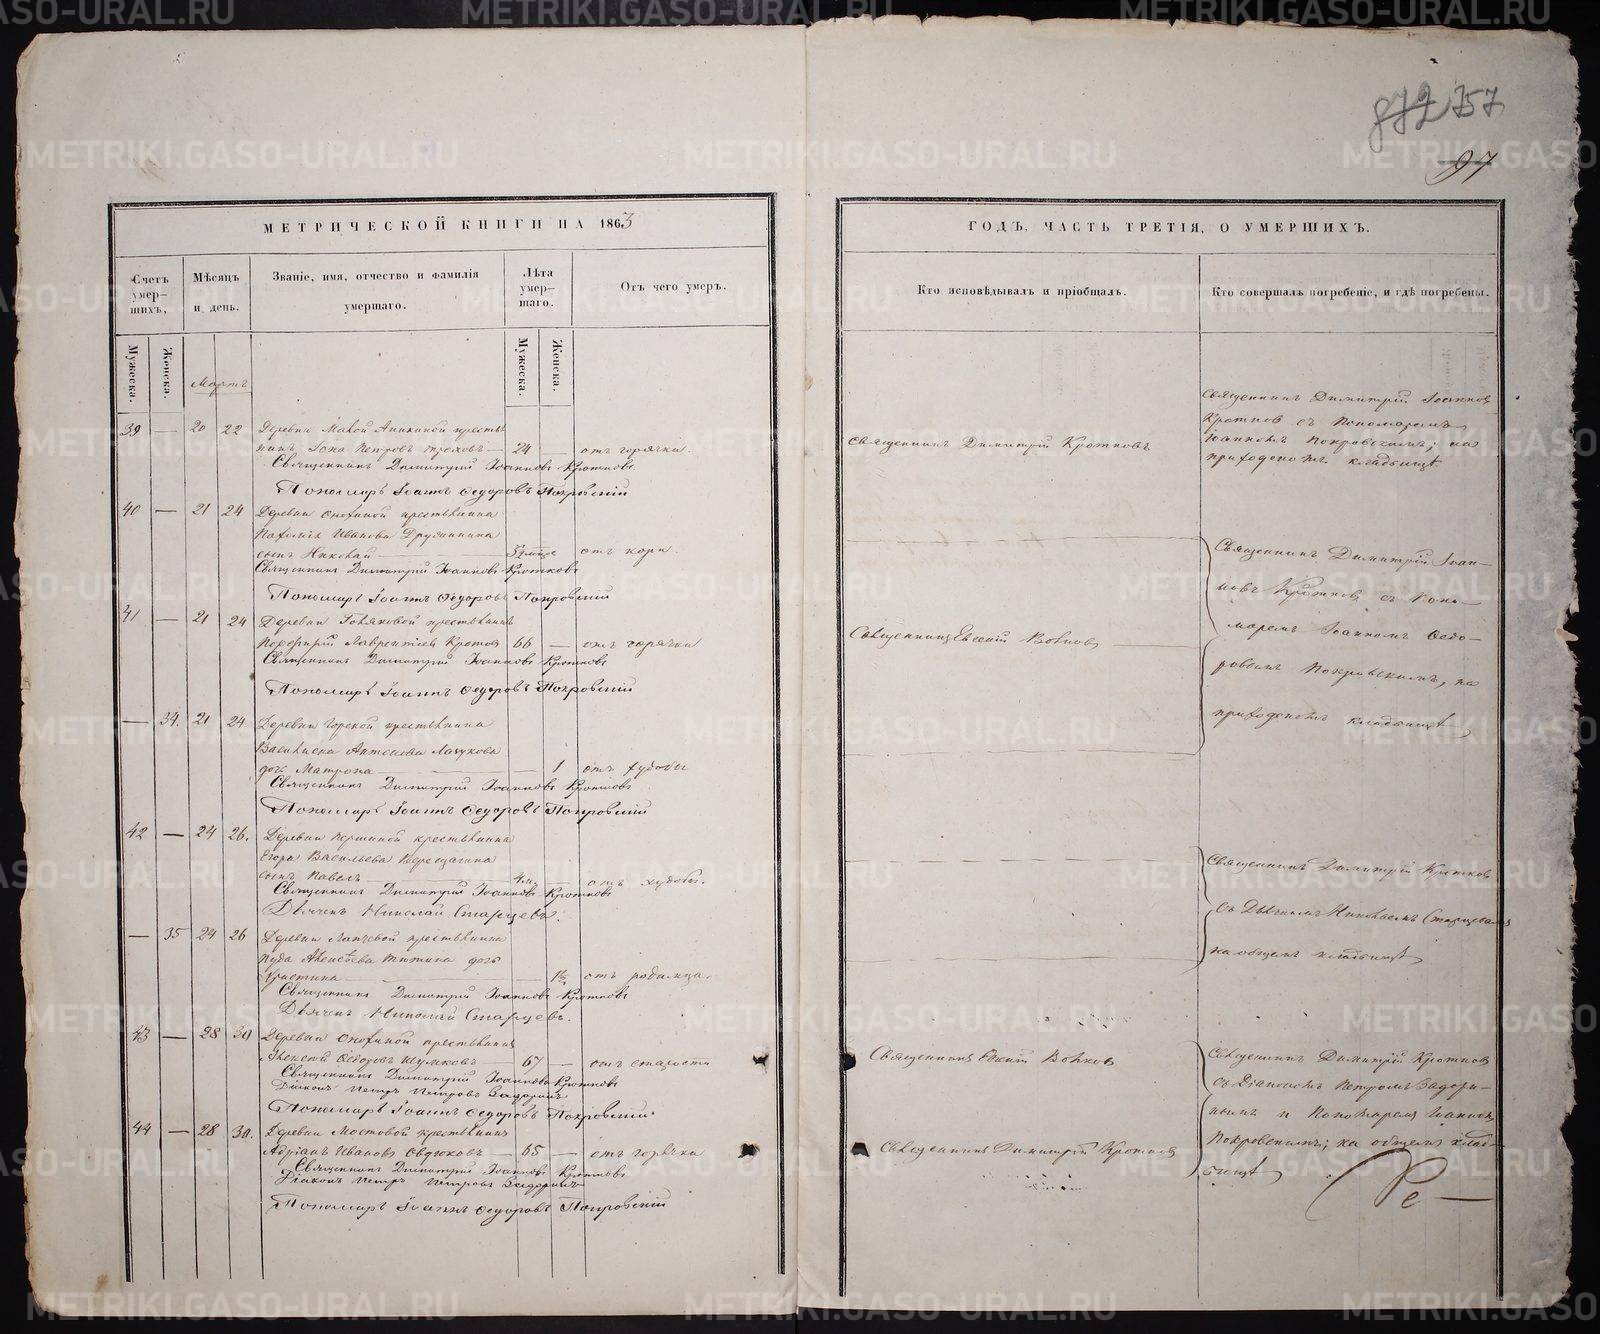 872 757
97
МЕТРИЧЕСКОЙ КНИГИ НА 1863
Счетъ умер-шихъ,
Мѣсяцъ и день.
Званіе, имя, отчество и фамилія умершаго.
Лѣта умер-шаго.
Отъ чего умеръ.
Мужеска.
Женска.
Мужеска.
Женска.
Мартъ
39 — 20 22 Деревни Малой Аникиной кресть
нинъ Іона Петровъ — 24 — отъ горячки.
Священникъ Димитрій Іоанновъ Кротковъ
Пономарь Іоаннъ Ѳедоровъ Покровскій
40 — 21 24 Деревни крестьянина
Иванова Дружинина
сынъ Николай отъ кори.
Священникъ Димитрій Іоанновъ Кротковъ
Пономарь Іоаннъ Ѳедоровъ Покровскій
41 — 21 24 Деревни крестьянинъ
Порфирій Лаврентіевъ 66 — отъ горячки
Священникъ Димитрій Іоанновъ Кротковъ
Пономарь Іоаннъ Ѳедоровъ Покровскій
— 34. 21 24 Деревни Горской крестьянина
Антонова
дочь Матрона — 1 отъ худобы
Священникъ Димитрій Іоанновъ Кротковъ
Пономарь Іоаннъ Ѳедоровъ Покровскій
42 — 24 26. Деревни Першиной крестьянина
Егора Васильева Верещагина
сынъ Павелъ 4 м. — отъ худобы.
Священникъ Димитрій Іоанновъ Кротковъ
Дьячекъ Николай Старцевъ.
— 35 24 26 Деревни крестьянина
Алексѣева дочь
Христина отъ родимца.
Священникъ Димитрій Іоанновъ Кротковъ
Дьячекъ Николай Старцевъ.
43 — 28 30 Деревни крестьянинъ
Алексѣй Ѳедотовъ Шумковъ 67 — отъ старости
Священникъ Димитрій Іоанновъ Кротковъ
Діаконъ Петръ Петровъ Задоринъ
Пономарь Іоаннъ Ѳедоровъ Покровскій.
44 — 28 30. Деревни Мостовой крестьянинъ
Адріанъ Ивановъ Овдюковъ — 65 — отъ горячки
Священникъ Димитрій Іоанновъ Кротковъ
Діаконъ Петръ Петровъ Задоринъ
Пономарь Іоаннъ Ѳедоровъ Покровскій
ГОДЪ, ЧАСТЬ ТРЕТІЯ, О УМЕРШИХЪ.
Кто исповѣдывалъ и пріобщалъ.
Кто совершалъ погребеніе, и гдѣ погребены.
Священникъ Димитрій Кротковъ
Священникъ Димитрій Іоаннов
Кротков съ Пономаремъ
Іоанномъ Покровскимъ; на
приходскомъ кладбищѣ.
Священникъ Евгеній Волков
Священникъ Димитрій Іоан-
новъ Кротков съ Поно-
маремъ Іоанномъ Ѳедо-
ровымъ Покровскимъ, на
приходскомъ кладбищѣ
Священникъ Димитрій Кротков
съ Дьячкомъ Николаемъ Старцевымъ
на общемъ кладбищѣ
Священникъ Евгеній Волков
Священникъ Димитрій Кротков
съ Діакономъ Петромъ Задори-
нымъ и Пономарем Іоанном
Покровскимъ; на общемъ клад-
бищѣ
Священникъ Димитрій Кротков
METRIKI.GASO-URAL.RU